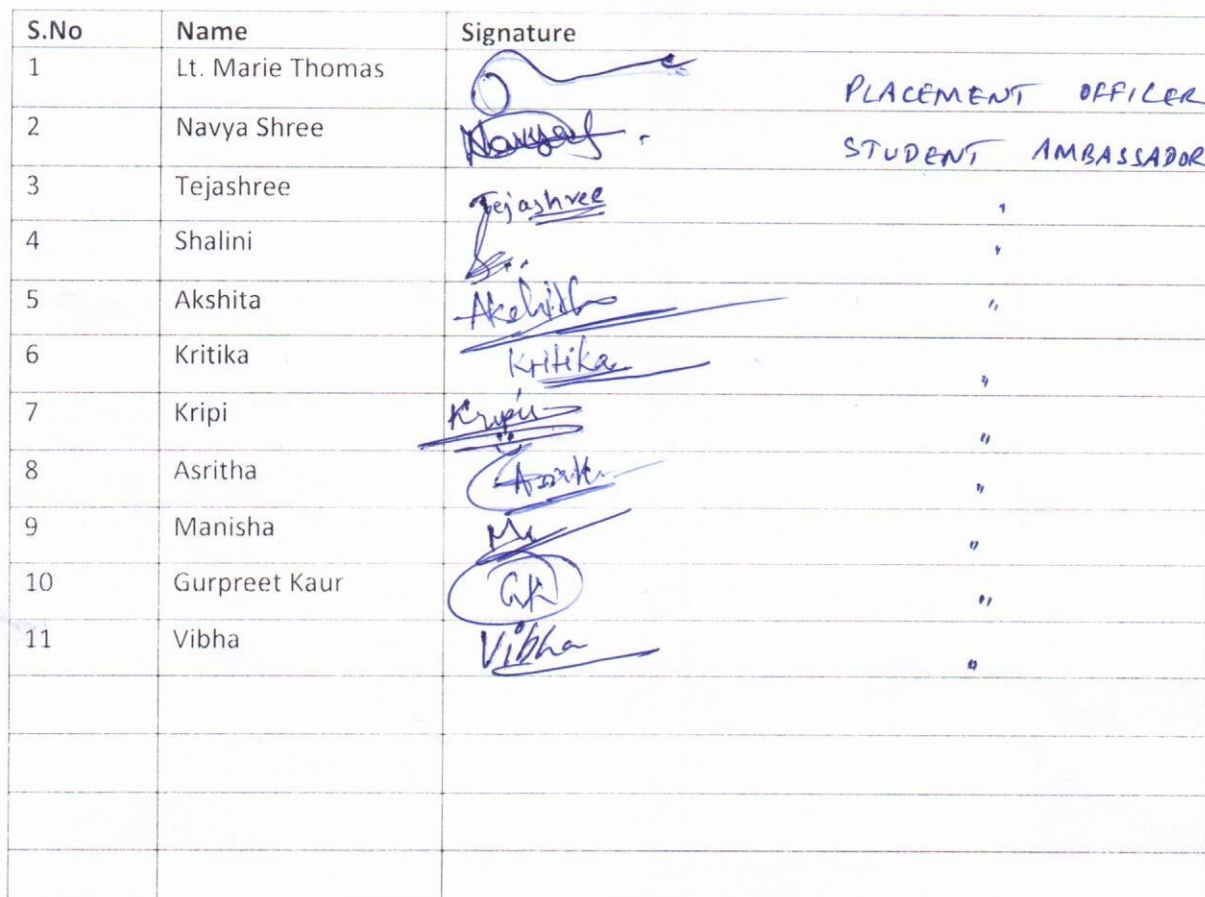 S.No Name Signature
1 Lt. Marie Thomas PLACEMENT OFFICER
2 Navya Shree STUDENT AMBASSADOR
3 Tejashree Tejashree "
4 Shalini "
5 Akshita "
6 Kritika Kritika "
7 Kripi "
8 Asritha "
9 Manisha "
10 Gurpreet Kaur GK "
11 Vibha Vibha "